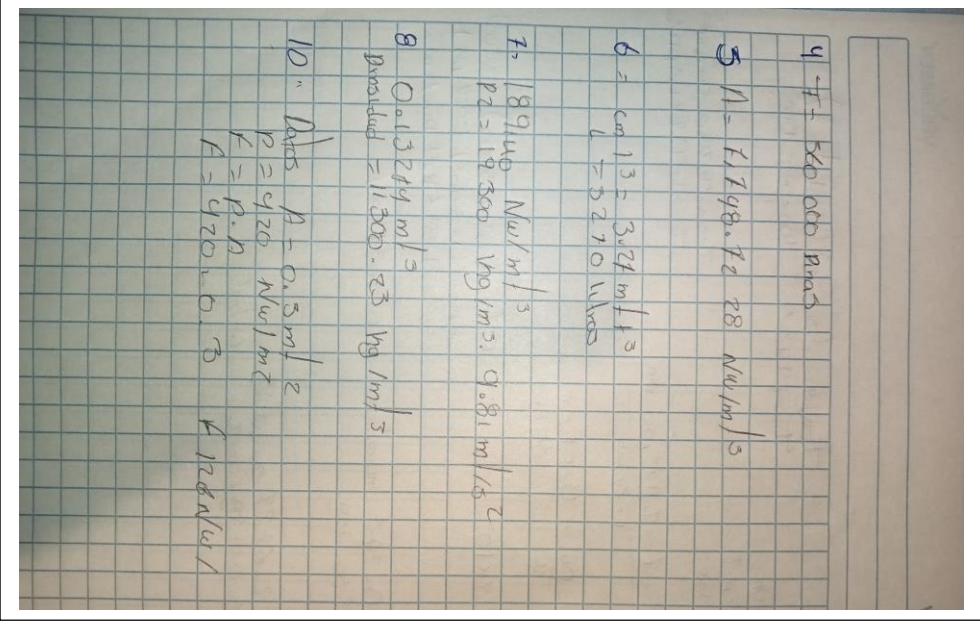 4 F = 560 000 Dinas
5 A = 7.7748.72 28 Nw/m/3
6 = cm 1³ = 3.27 m/t³
L = 3270 litros
7= 189140 Nw/m/3
P2 = 19300 kg/m3. 9.81 m/s2
8 0.13274 m/3
Densidad = 11300.23 kg/m/3
10 " Datos A = 0.3 m/2
P = 420 Nw/m2
F = P.A
F = 420.0.3 F 126 Nw/